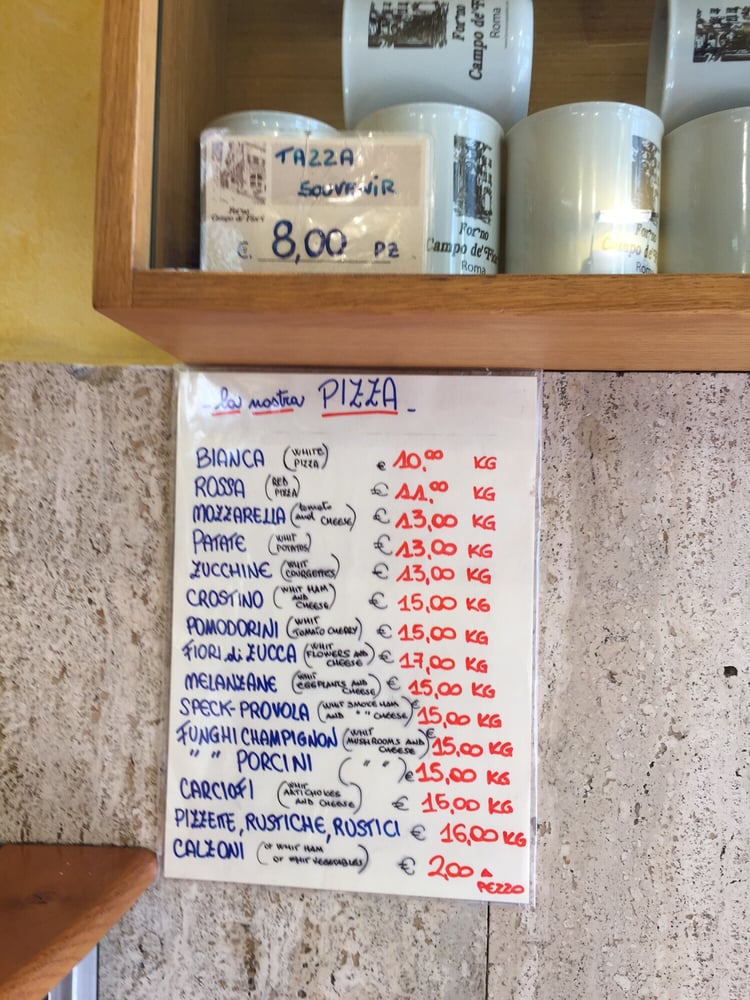 For'no
Campo de' F
Roma
TAZZA
SOUVENIR
For'no
Campo de' Fiori
€. 8,00 PZ
For'no
Campo de' Fio
Roma
For'no
Campo de' F
Roma
- la nostra PIZZA -
BIANCA (WHITE PIZZA) € 10,00 KG
ROSSA (RED PIZZA) € 11,00 KG
MOZZARELLA (tomato and CHEESE) € 13,00 KG
PATATE (WHIT POTATOS) € 13,00 KG
ZUCCHINE (WHIT COURGETTES) € 13,00 KG
CROSTINO (WHIT HAM AND CHEESE) € 15,00 KG
POMODORINI (WHIT TOMATO CHERRY) € 15,00 KG
FIORI di ZUCCA (WHIT FLOWERS AND CHEESE) € 17,00 KG
MELANZANE (WHIT EGGPLANTS AND CHEESE) € 15,00 KG
SPECK-PROVOLA (WHIT SMOKE HAM AND " " CHEESE) € 15,00 KG
FUNGHI CHAMPIGNON (WHIT MUSHROOMS AND CHEESE) € 15,00 KG
" " PORCINI ( " " ) € 15,00 KG
CARCIOFI (WHIT ARTICHOKES AND CHEESE) € 15,00 KG
PIZZETTE, RUSTICHE, RUSTICI € 16,00 KG
CALZONI (OF WHIT HAM OR WHIT VEGETABLES) € 2,00 A PEZZO